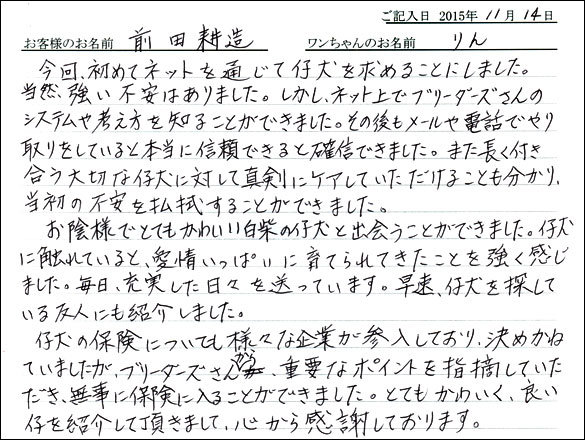 ご記入日 2015年 11月 14日
お客様のお名前 前田耕造 ワンちゃんのお名前 りん
今回、初めてネットを通じて仔犬を求めることにしました。
当然、強い不安はありました。しかし、ネット上でブリーダーズさんの
システムや考え方を知ることができました。その後もメールや電話でやり
取りをしていると本当に信頼できると確信できました。また長く付き
合う大切な仔犬に対して真剣にケアしていただけることも分かり、
当初の不安を払拭することができました。
お陰様でとてもかわいい白柴の仔犬と出会うことができました。仔犬
に触れていると、愛情いっぱいに育てられてきたことを強く感じ
ました。毎日、充実した日々を送っています。早速、仔犬を探して
いる友人にも紹介しました。
仔犬の保険についても様々な企業が参入しており、決めかね
ていましたが、ブリーダーズさんから、重要なポイントを指摘していた
だき、無事に保険に入ることができました。とてもかわいく、良い
仔を紹介して頂きまして、心から感謝しております。